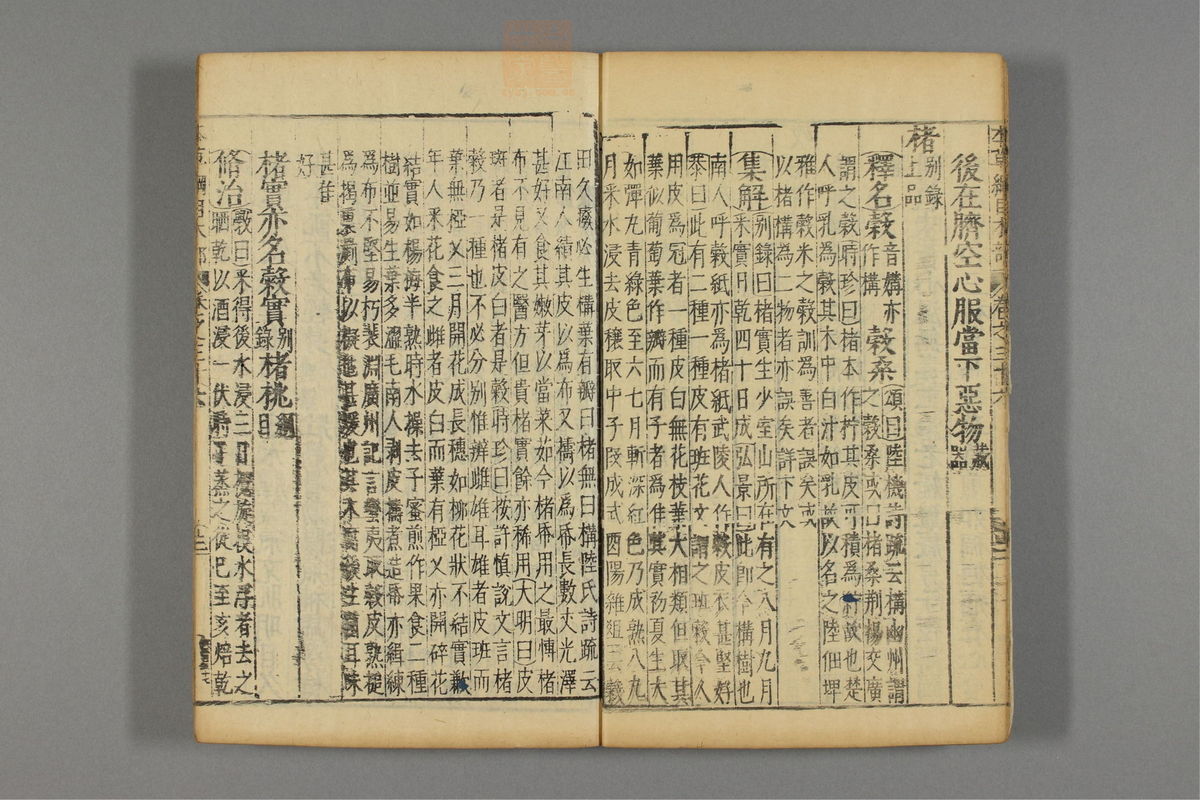 後在臍空心服當下惡物
楮別錄上品
釋名穀音媾亦作構穀桑頌曰陸機詩疏云構幽州謂
之穀桑或曰楮桑荆楊交廣
謂之穀時珍曰楮本作柠其皮可積為紵故也楚
人呼乳為穀其木中白汁如乳故以名之陸佃埤
雅作穀米之穀訓為善者誤矣或
以楮構為二物者亦誤矣詳下文
集解別錄曰楮實生少室山所在有之八月九月
采實日乾四十日成弘景曰此即今構樹也
南人呼穀紙亦為楮紙武陵人作穀皮衣甚堅好
恭曰此有二種一種皮有斑花文謂之斑穀今人
用皮為冠者一種皮白無花枝葉大相類但取其
葉似葡萄葉作瓣而有子者為佳其實初夏生大
如彈丸青綠色至六七月漸深紅色乃成熟八九
月采水浸去皮穰取中子段成式酉陽雜俎云穀
田久廢必生構葉有瓣曰楮無曰構陸氏詩疏云
江南人績其皮以為布又擣以為帋長數丈光澤
甚好又食其嫩芽以當菜茹今楮帋用之最慱楮
布不見有之醫方但貴楮實餘亦稀用大明曰皮
斑者是楮皮白者是穀時珍曰按許慎說文言楮
穀乃一種也不必分別惟辨雌雄耳雄者皮斑而
葉無椏叉三月開花成長穗如柳花狀不結實歉
年人采花食之雌者皮白而葉有椏叉亦開碎花
結實如楊梅半熟時水澡去子蜜煎作果食二種
樹並易生葉多澀毛南人剥皮擣煮造帋亦緝練
為布不堅易朽裴淵廣州記言蠻夷取穀皮熟槌
為揭裏罽布以擬氊甚煖也其木腐後生菌耳味
甚佳
好
楮實亦名穀實別錄楮桃綱目
脩治斆曰采得後水浸三日攪旋投水浮者去之
晒乾以酒浸一伏時了蒸之從巳至亥焙乾